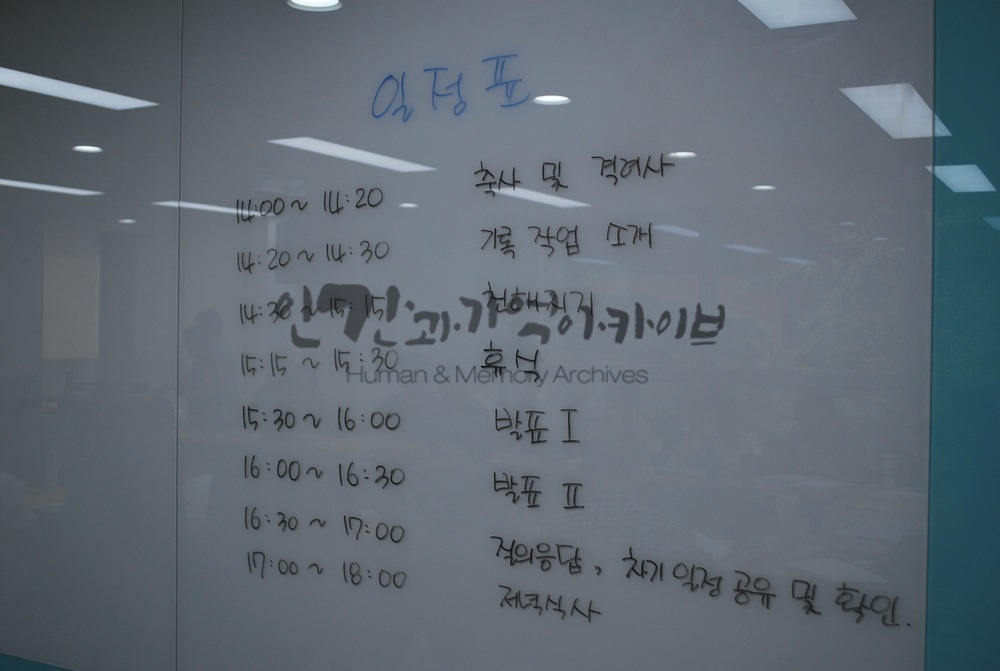 일정표
14:00 ~ 14:20 축사 및 격려사
14:20 ~ 14:30 기록 작업 소개
14:30 ~ 15:15 천해지지
15:15 ~ 15:30 휴식
15:30 ~ 16:00 발표 I
16:00 ~ 16:30 발표 II
16:30 ~ 17:00 질의응답, 차기 일정 공유 및 확인.
17:00 ~ 18:00 저녁식사
인간과기억아카이브
Human & Memory Archives